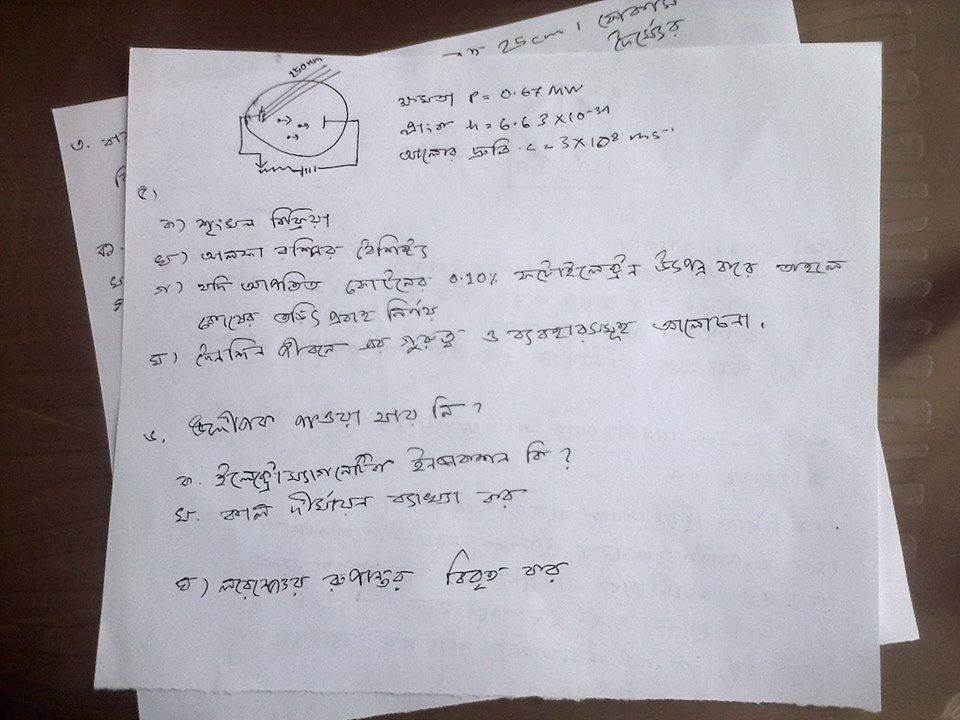 25cm। ফোকাস
দৈর্ঘ্যের
250nm
ক্ষমতা P = 0.67 MW
h = 6.63 X 10-34
আলোর দ্রুতি . c = 3 X 10⁸ ms⁻¹
৩.
৫।
ক) শৃংখল বিক্রিয়া
খ) আলফা রশ্মির বৈশিষ্ট্য
গ) যদি আপতিত ফোটনের 0.10% ফটোইলেক্ট্রন উৎপন্ন করে তাহলে
কোষের তড়িৎ প্রবাহ নির্ণয়
ঘ) দৈনন্দিন জীবনে এর গুরুত্ব ও ব্যবহারসমূহ আলোচনা।
৬. উদ্দীপক পাওয়া যায় নি?
ক. ইলেক্ট্রোম্যাগনেটিক কি?
খ. কাল দীর্ঘায়ন ব্যাখ্যা কর
ঘ) লরেঞ্জের রুপান্তর বিবৃত কর